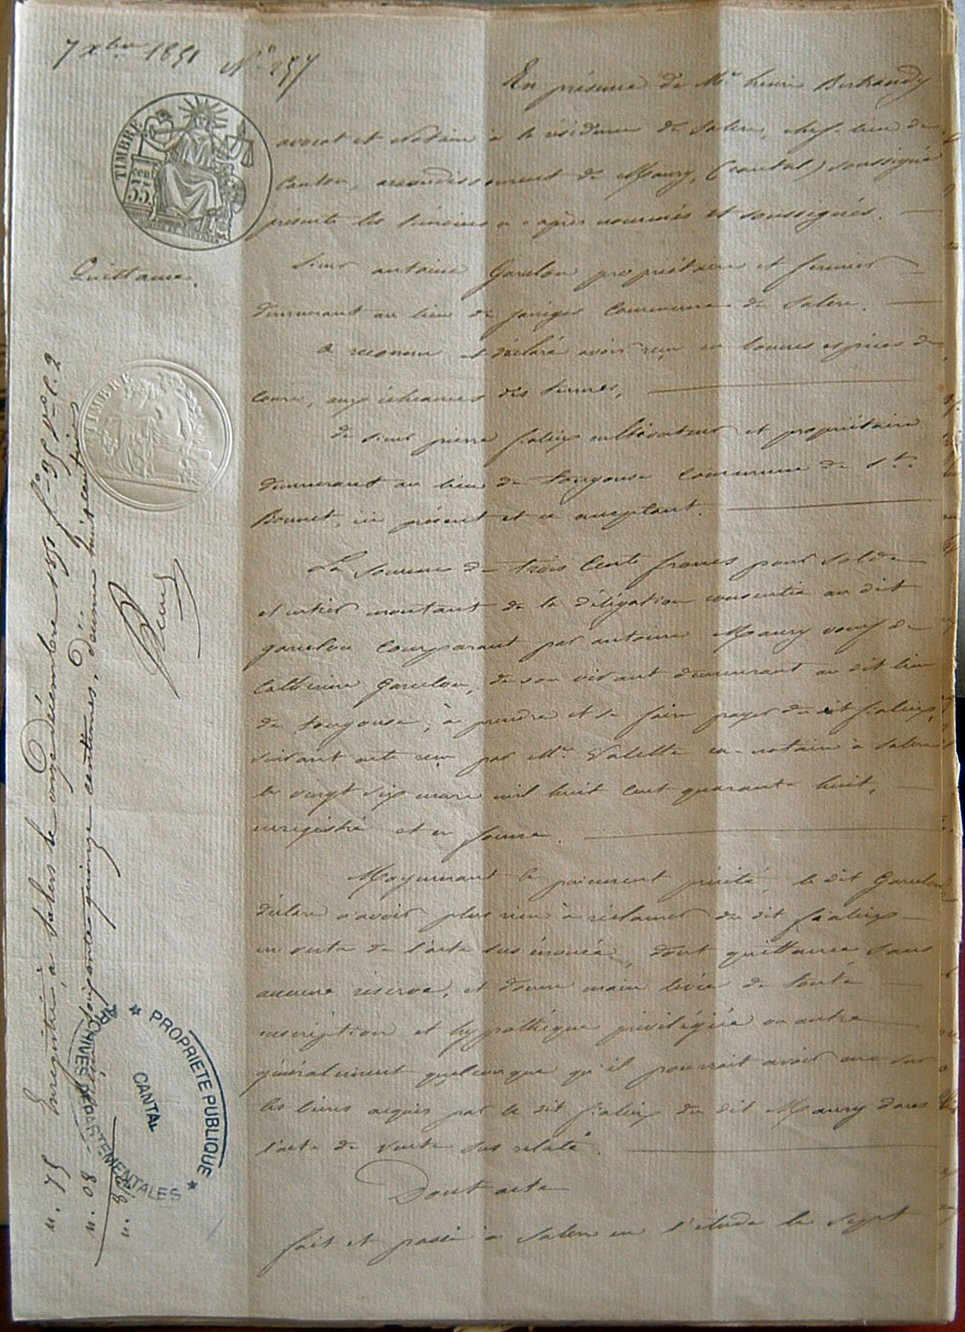 7 xbre 1851 No 257
En présence de Me henri Bertrandy
TIMBRE
35 cen
avocat et Notaire à la résidence de Salers, chef lieu de
Canton, arrondissement de Maury, (cantal) soussigné
présents les témoins ci après nommés et soussignés.
Quittance.
Sieur antoine Garcelon propriétaire et fermier
demeurant au lieu de commune de Salers.
a reconnu et déclaré avoir reçu en bonnes espèces de
cours, aux échéances des termes,
TIMBRE
de Sieur pierre faliex cultivateur et propriétaire
demeurant au lieu de tougouse commune de St.
Bonnet, ici présent et ce acceptant.
La Somme de trois Cents francs pour Solde
et entier montant de la délégation consentie au dit
garcelon comparant par antoine Maury veuf de
Catherine Garcelon, de son vivant demeurant au dit lieu
de tougouse, à prendre et se faire payer du dit faliex,
suivant acte reçu par Me Valette notaire à Salers
le vingt six mars mil huit cent quarante huit,
enregistré et en forme.
Moyennant le paiement précité le dit Garcelon
déclare n'avoir plus rien à réclamer du dit faliex
en vertu de l'acte sus énoncé, dont quittance Sans
aucune réserve, et donne main levée de toute
inscription et hypothèque privilégiée ou autre
généralement quelconque qu'il pourrait avoir sur
les biens acquis par le dit faliex du dit Maury dans
l'acte de vente sus relaté.
Dont acte
fait et passé à Salers en l'étude le Sept
Enregistré à Salers le onze décembre 1851 fo 95
cinquante quinze centimes, décime huit centimes
PROPRIETE PUBLIQUE
ARCHIVES DEPARTEMENTALES
CANTAL